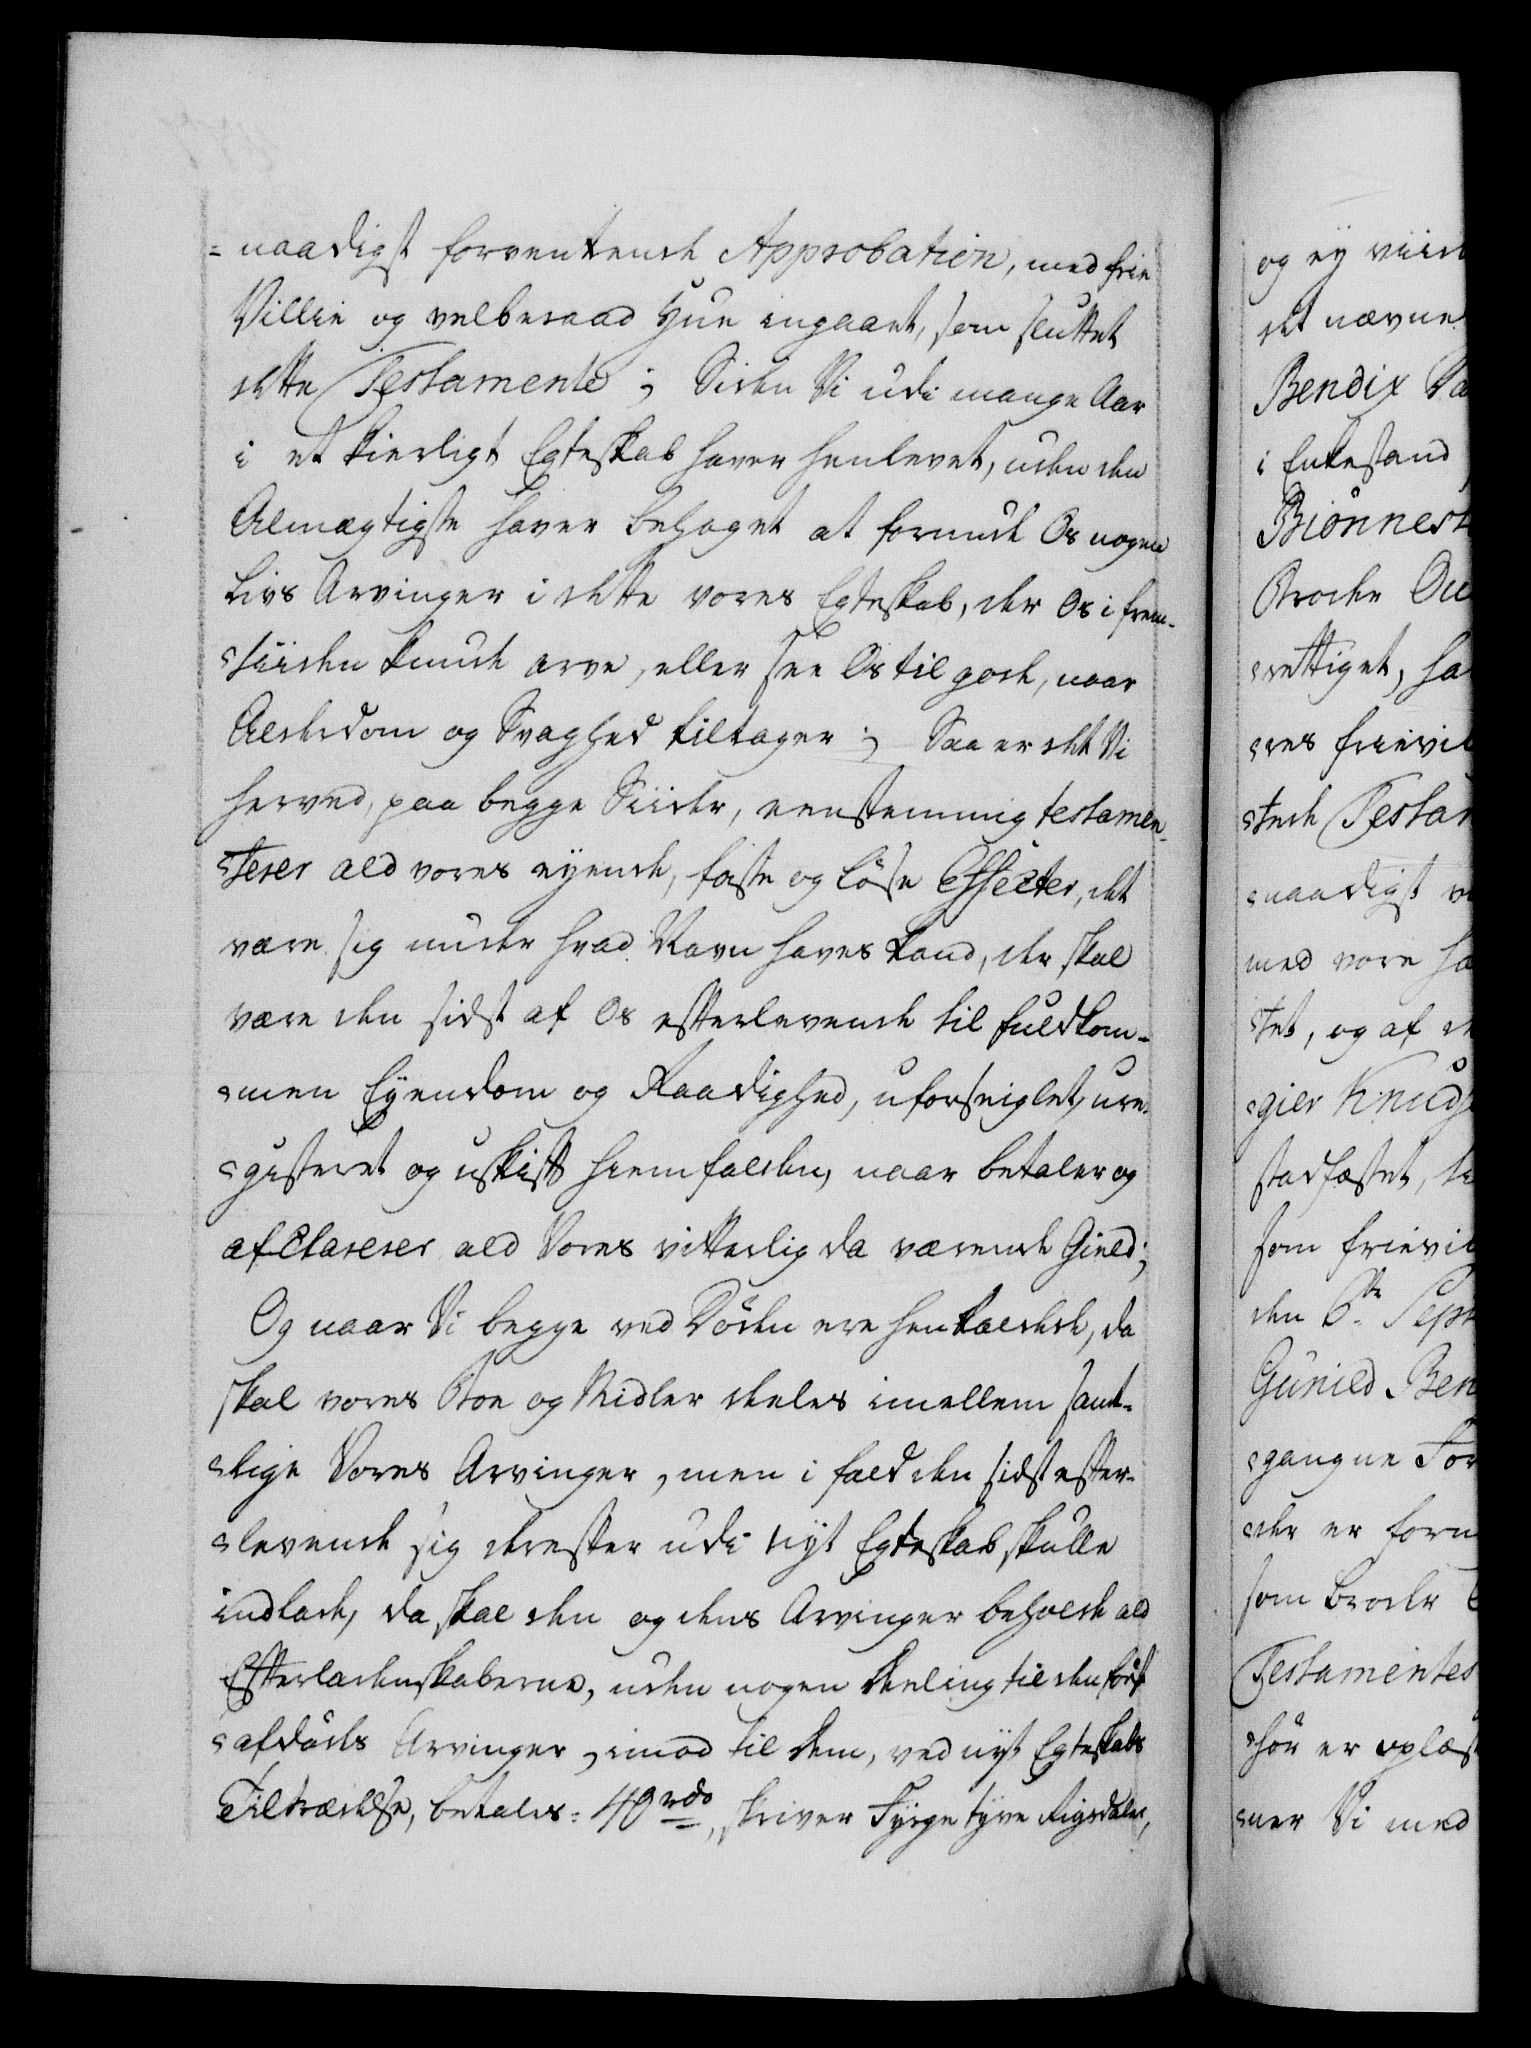 =naadigst forventende Approbation, med frie
Villie og velberaad Hue ingaaet, som sluttet
dette Testamente; Siden Vi udi mange Aar
i et kierligt Egteskab haver henlevet, uden den
Almægtigste haver behaget at formide Os nogen
Livs Arvinger i dette vores Egteskab, der Os i frem-
=tiiden kunde arve, eller see Os til gode, naar
Alderdom og Svaghed tiltager; Saa er det Vi
herved, paa begge Siider, eenstemmig testamen-
=terer ald vores eyende, faste og Løse Effecter, det
være sig under hvad Navn haves kand, der skal
være den sidst af Os efterlevende til fuldkom-
=men Eyendom og Raadighed, uforseiglet, ure-
=gisteret og uskift hiemfalden, naar betaler og
afclarerer ald Vores vitterlig da værende Gield;
Og naar Vi begge ved Døden ere henkaldede, da
skal vores Boe og Midler deeles imellem samt-
=lige Vores Arvinger, men i fald den sidst efter-
=levende sig derefter udi nyt Egteskab skulle
indlade, da skal den og dens Arvinger beholde ald
Efterladenskaberne, uden nogen Deeling til den først
=afdødes Arvinger, imod til dem, ved nyt Egteskabs
Tiltrædelse, betales: 40 rdr, skriver Fyrge tyve Rigsdaler,
og ey viid
det nævne
Bendix
i Enkestand
Biønnes
Broder
=rettiget, ha
=res frievil
=tede Testam
=naadigst
med vore ha
=tet, og af
=gier Knud
stadfæstet,
som frievil
den 6te Sept
Gunild Ben
=gangne For
=der er forn
som Broder
Testamentes
=hør er oplæst
=ner Vi med